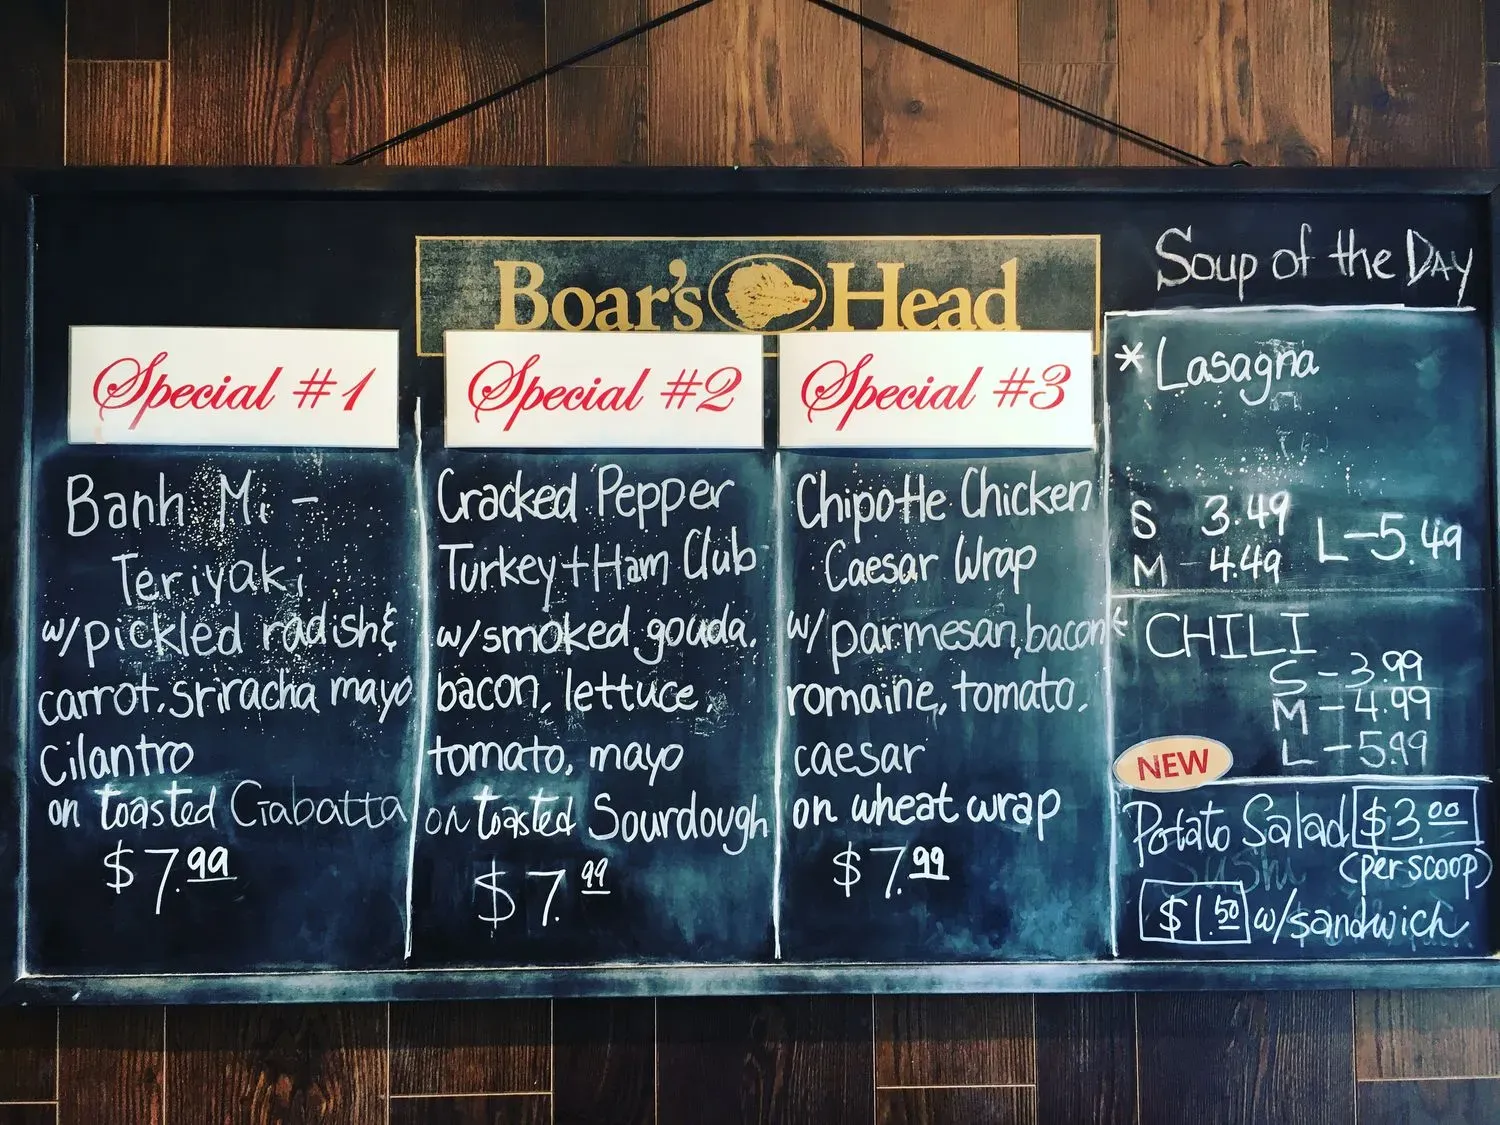 Boar's Head
Special #1
Banh Mi -
Teriyaki
w/pickled radish &
carrot, sriracha mayo
cilantro
on toasted Ciabatta
$7.99
Special #2
Cracked Pepper
Turkey + Ham Club
w/smoked gouda,
bacon, lettuce,
tomato, mayo
on toasted Sourdough
$7.99
Special #3
Chipotle Chicken
Caesar Wrap
w/parmesan, bacon
romaine, tomato,
caesar
on wheat wrap
$7.99
Soup of the DAY
* Lasagna
S 3.49
M - 4.49
L - 5.49
* CHILI
S - 3.99
M - 4.99
L - 5.99
NEW
Potato Salad $3.00
(per scoop)
$1.50 w/sandwich